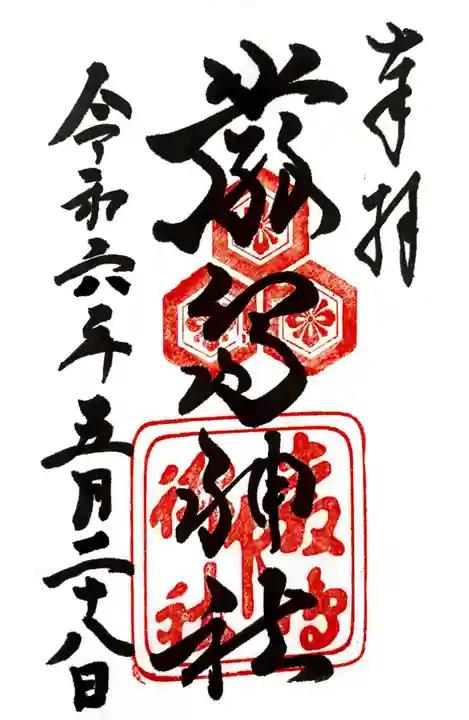 奉拝
厳島神社
令和六年五月二十八日
厳島
神社